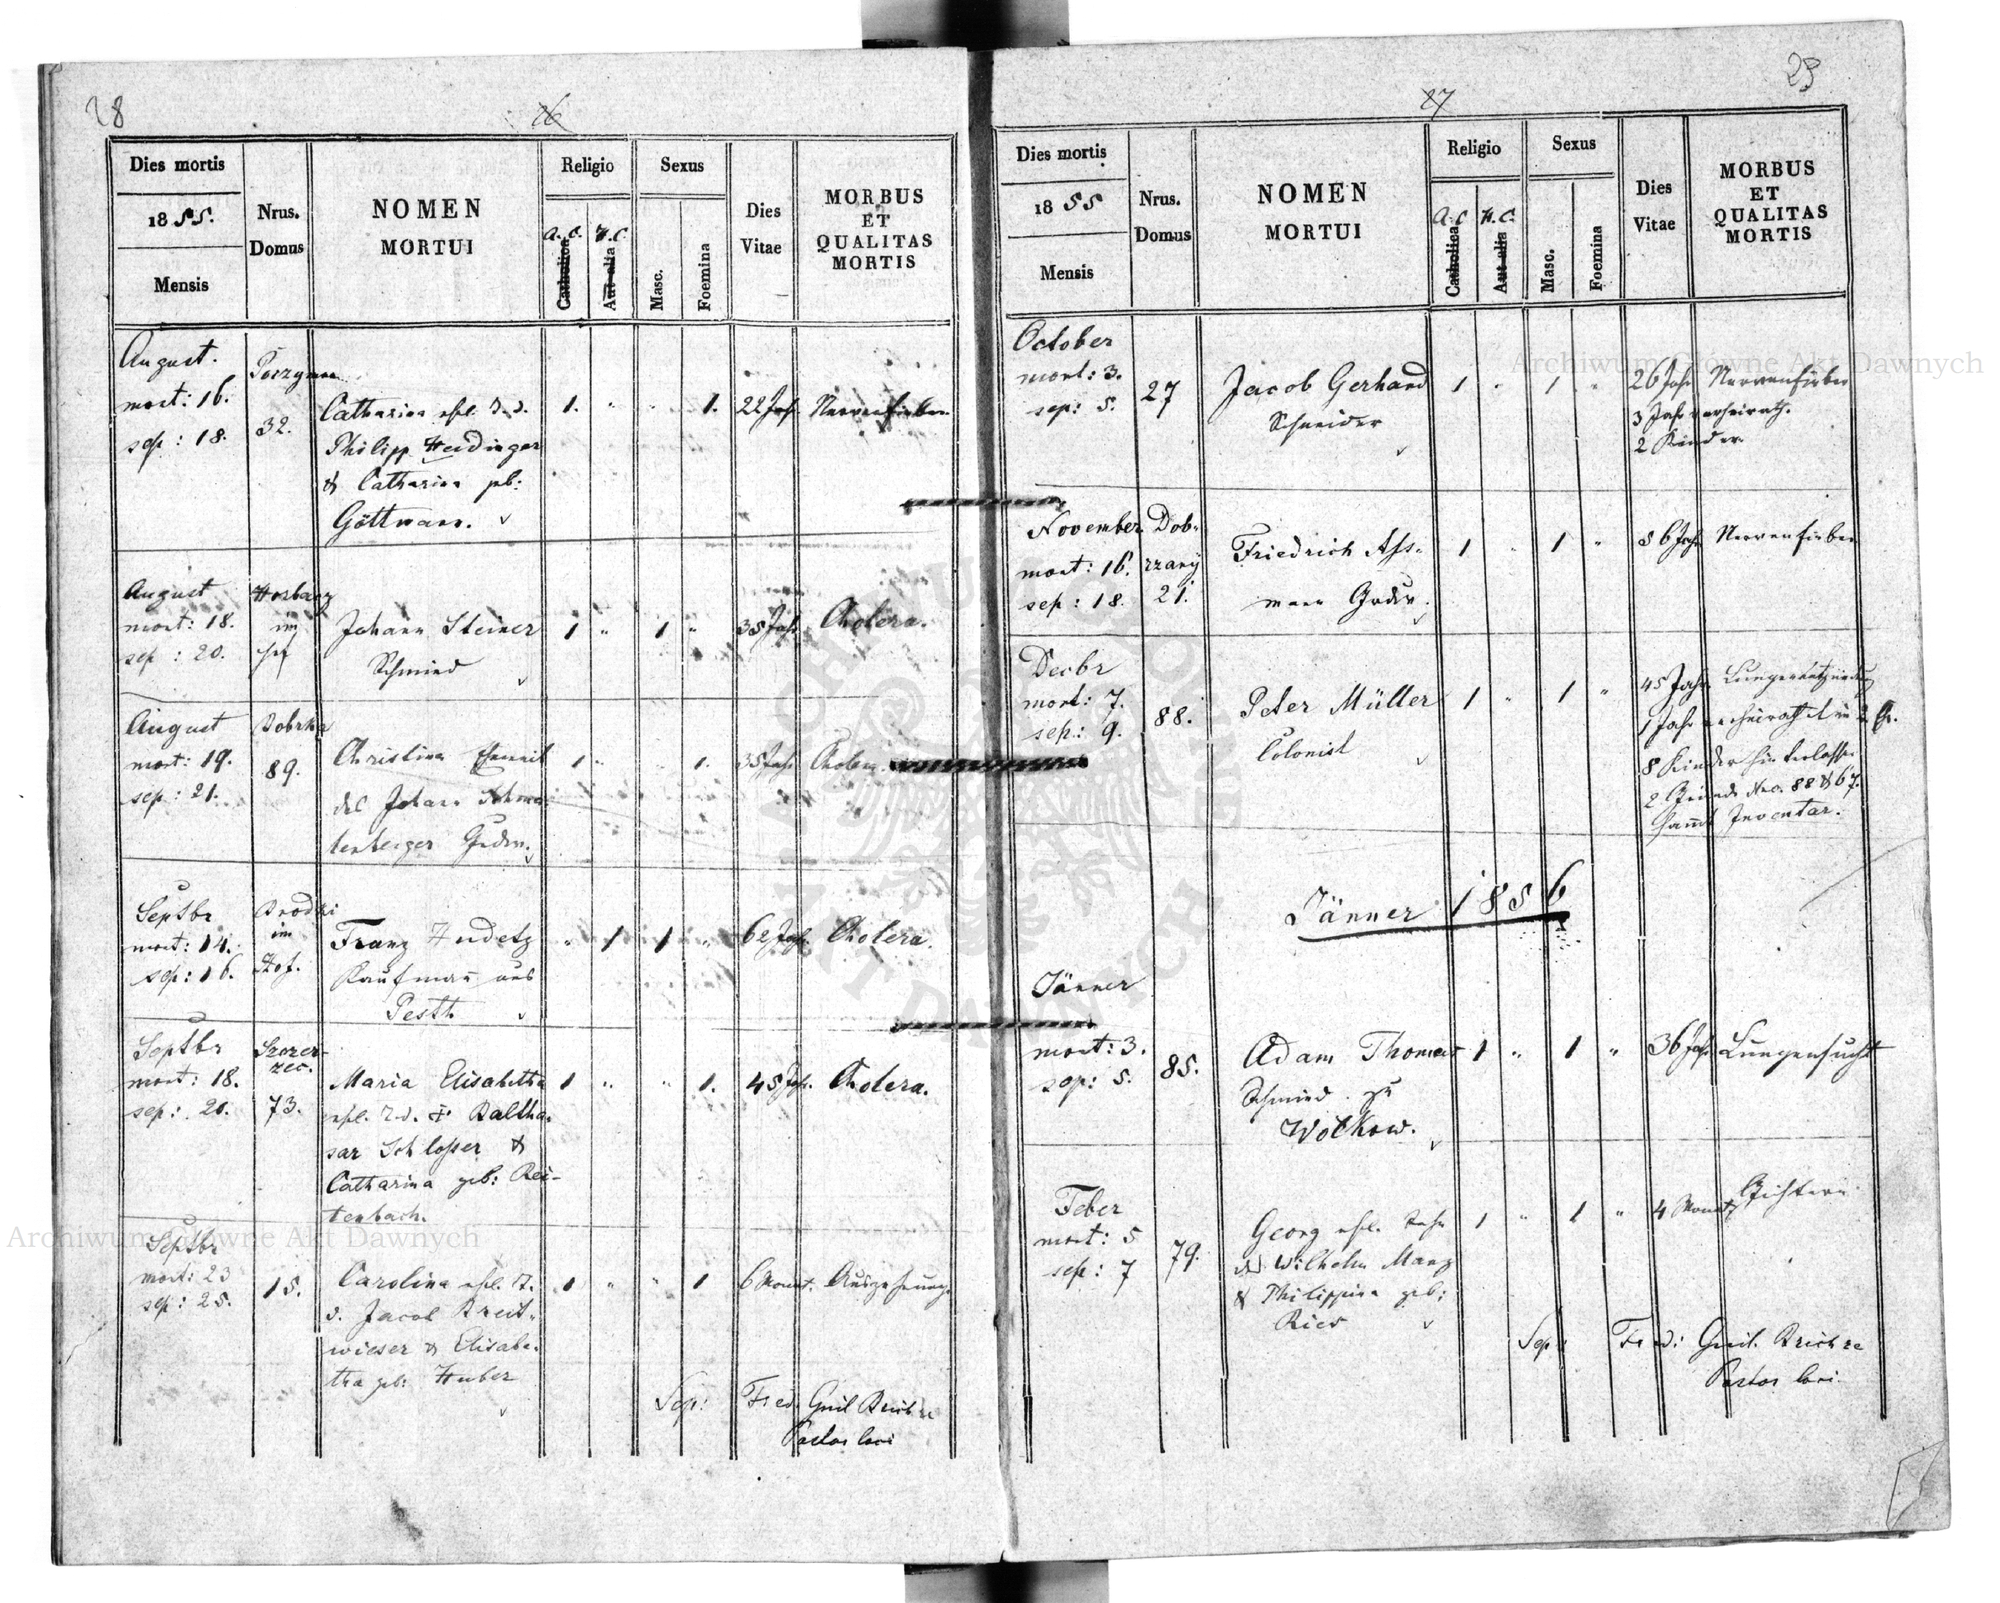 28
26
Dies mortis
1855.
Mensis
Nrus.
Domus
NOMEN
MORTUI
Religio
A. C.
Catholica
H. C.
Aut alia
Sexus
Masc.
Foemina
Dies
Vitae
MORBUS
ET
QUALITAS
MORTIS
August.
mort: 16.
sep: 18.
32.
Catharina ehl. T. d.
Philipp Heidinger
& Catharina geb:
Göttmann.
1. " " 1.
22 Jahr
Nervenfieber
August
mort: 18.
sep: 20.
im
Hof
Johann Steiner
Schmied
1 " 1 "
35 Jahr
Cholera.
August
mort: 19.
sep: 21.
89.
Christina
des Johann
tenberger Grdrs.
1 " " 1.
35 Jahr
Cholera
Septbr
mort: 14.
sep: 16.
Brodki
im
Hof.
Franz Hudetz
Kaufmann aus
Pesth
" 1 1 "
62 Jahr
Cholera.
Septbr
mort: 18.
sep: 20.
Szczer-
zec.
73.
Maria Elisabetha
ehl. T. d. † Baltha-
sar Schlosser &
Catharina geb: Rei-
tenbach.
1 " " 1.
45 Jahr
Cholera.
Septbr
mort: 23
sep: 25.
15.
Carolina ehl. T.
d. Jacob Breit-
wieser & Elisabe-
tha geb: Huber
1 " " 1
6 Monat.
Auszehrung
Sep: Fred. Guil
Pastor loci
29
27
Dies mortis
1855
Mensis
Nrus.
Domus
NOMEN
MORTUI
Religio
A. C
Catholica
H. C.
Aut alia
Sexus
Masc.
Foemina
Dies
Vitae
MORBUS
ET
QUALITAS
MORTIS
October
mort: 3.
sep: 5.
27
Jacob Gerhard
Schneider
1 " 1 "
26 Jahr
3 Jahr verheirath.
2 Kinder
Nervenfieber
November
mort: 16.
sep: 18.
Dob-
rzany
21.
Friedrich Ass-
mann Grdr.
1 " 1 "
56 Jahr
Nervenfieber
Decbr
mort: 7.
sep: 9.
88.
Peter Müller
Colonist
1 " 1 "
45 Jahr
Lungenentzündung
1 Jahr verheirathet in 2. Eh.
8 Kinder hinterlassen
2 Gründe Nro. 88 & 67.
sammt Inventar.
Jänner 1856
Jänner
mort: 3.
sep: 5.
85.
Adam Thomas
Schmied zu
Wolkow.
1 " 1 "
36 Jahr
Lungensucht
Feber
mort: 5
sep: 7
79.
Georg ehl. Sohn
des Wilhelm Manz
& Philippina geb:
Ries
1 " 1 "
4 Monat
Gichtern
Sep: Fred: Guil.
Pastor loci.
Archiwum Główne Akt Dawnych
Archiwum Główne Akt Dawnych
ARCHIWUM GŁÓWNE
AKT DAWNYCH